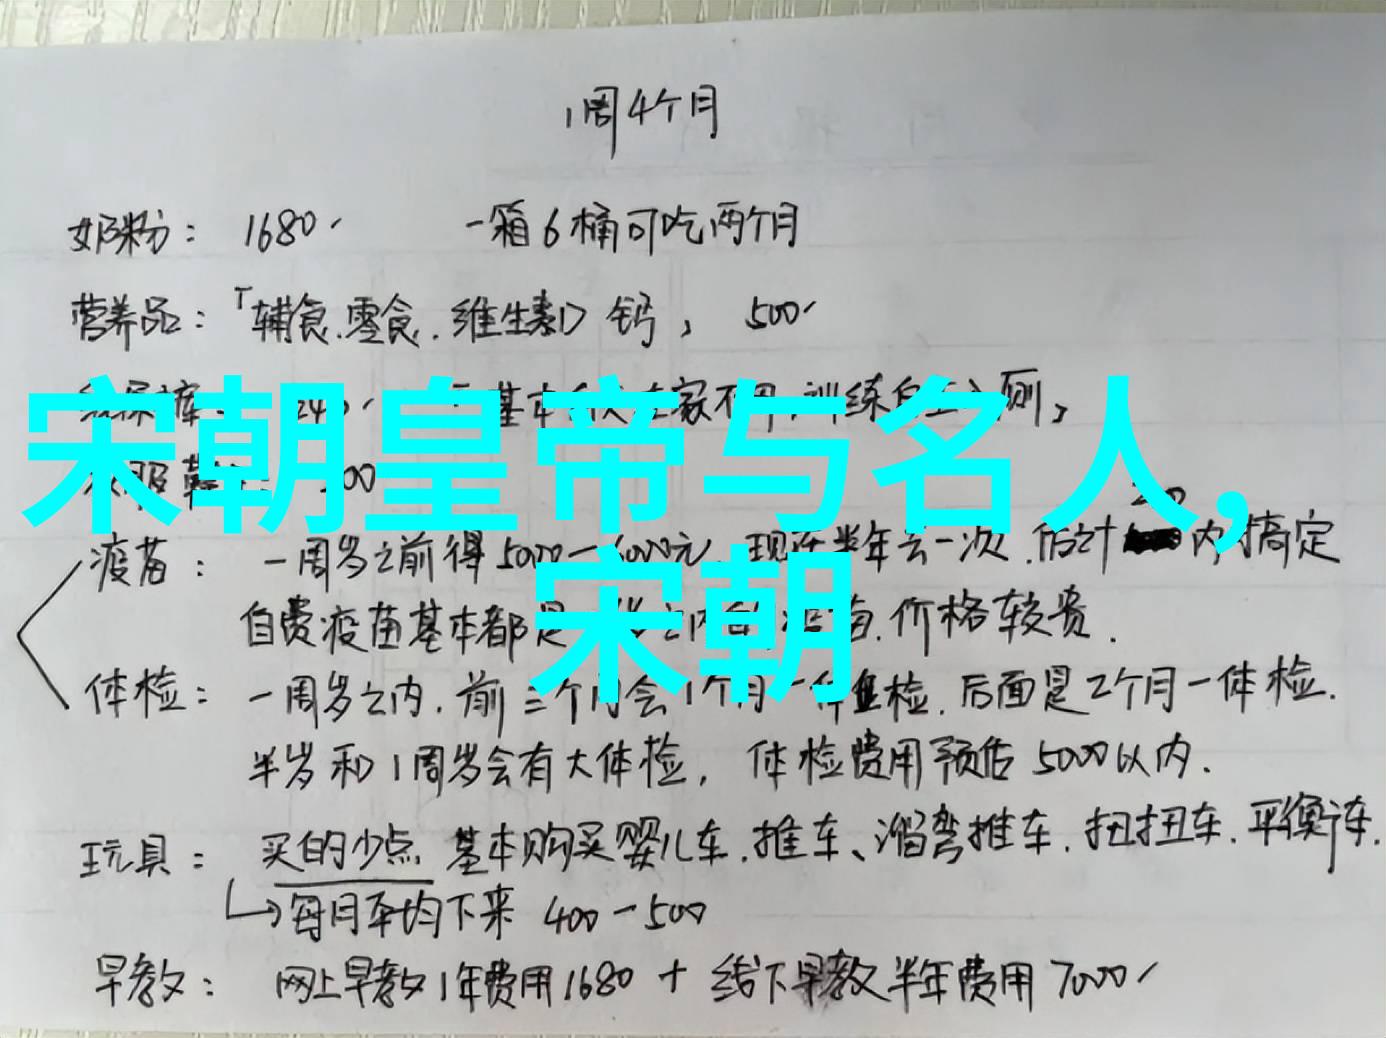 1周4个月
奶粉： 1680 一箱6桶可吃两个月
营养品：「辅食.零食.维生素D 钙， 500
宋朝皇帝与名人，
宋朝
疫苗： 一周岁之前得5000-6000元，现在半年去一次，估计 内搞定
自费疫苗基本都是 价格较贵.
体检： 一周岁之内，前三个月会1个月一体检，后面是2个月一体检.
半岁和1周岁会有大体检， 体检费用预估5000以内.
玩具： 买的少点 基本购买婴儿车.推车、溜弯推车.扭扭车.平衡车.
每月平均下来 400-500
早教： 网上早教1年费用1680 + 线下早教半年费用7000